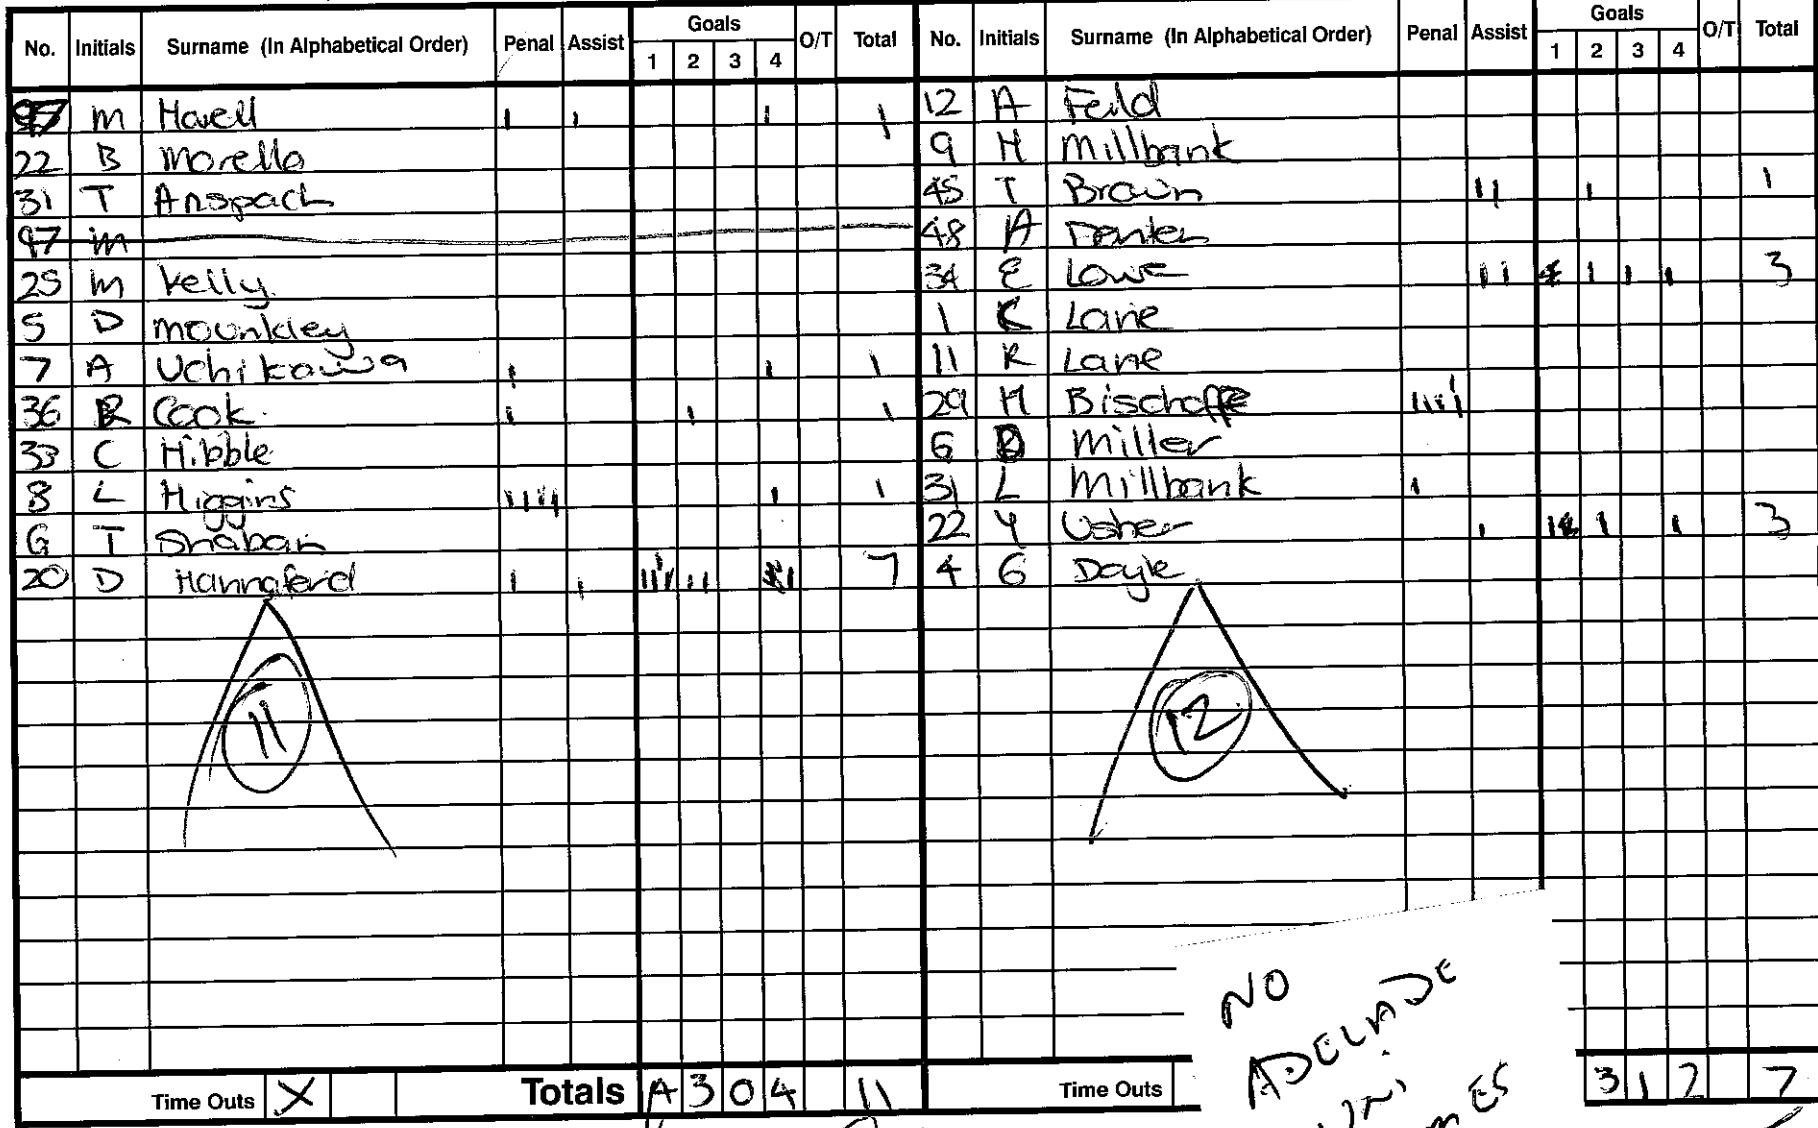 No. Initials Surname (In Alphabetical Order) Penal Assist Goals 1 2 3 4 O/T Total
97 M Havell 1 1 1 1
22 B Morello
31 T Anspach
97 M
25 M Kelly
5 D Mounkley
7 A Uchikawa 1 1 1
36 R Cook 1 1 1
33 C Hibble
8 L Higgins 1111 1 1
6 T Shaban
20 D Hannaford 1 1 11 7
11
Time Outs X Totals 4 3 0 4 11
No. Initials Surname (In Alphabetical Order) Penal Assist Goals 1 2 3 4 O/T Total
12 A Feild
9 H Millbank
45 T Brown 11 1 1
48 A Denten
34 E Lowe 11 1 1 1 3
1 K Lane
11 R Lane
29 H Bischoff
6 Miller
31 L Millbank 1
22 Y Usher 1 1 1 1 3
4 G Doyle
12
NO
ADELAIDE
UNI
Time Outs 3 1 2 7